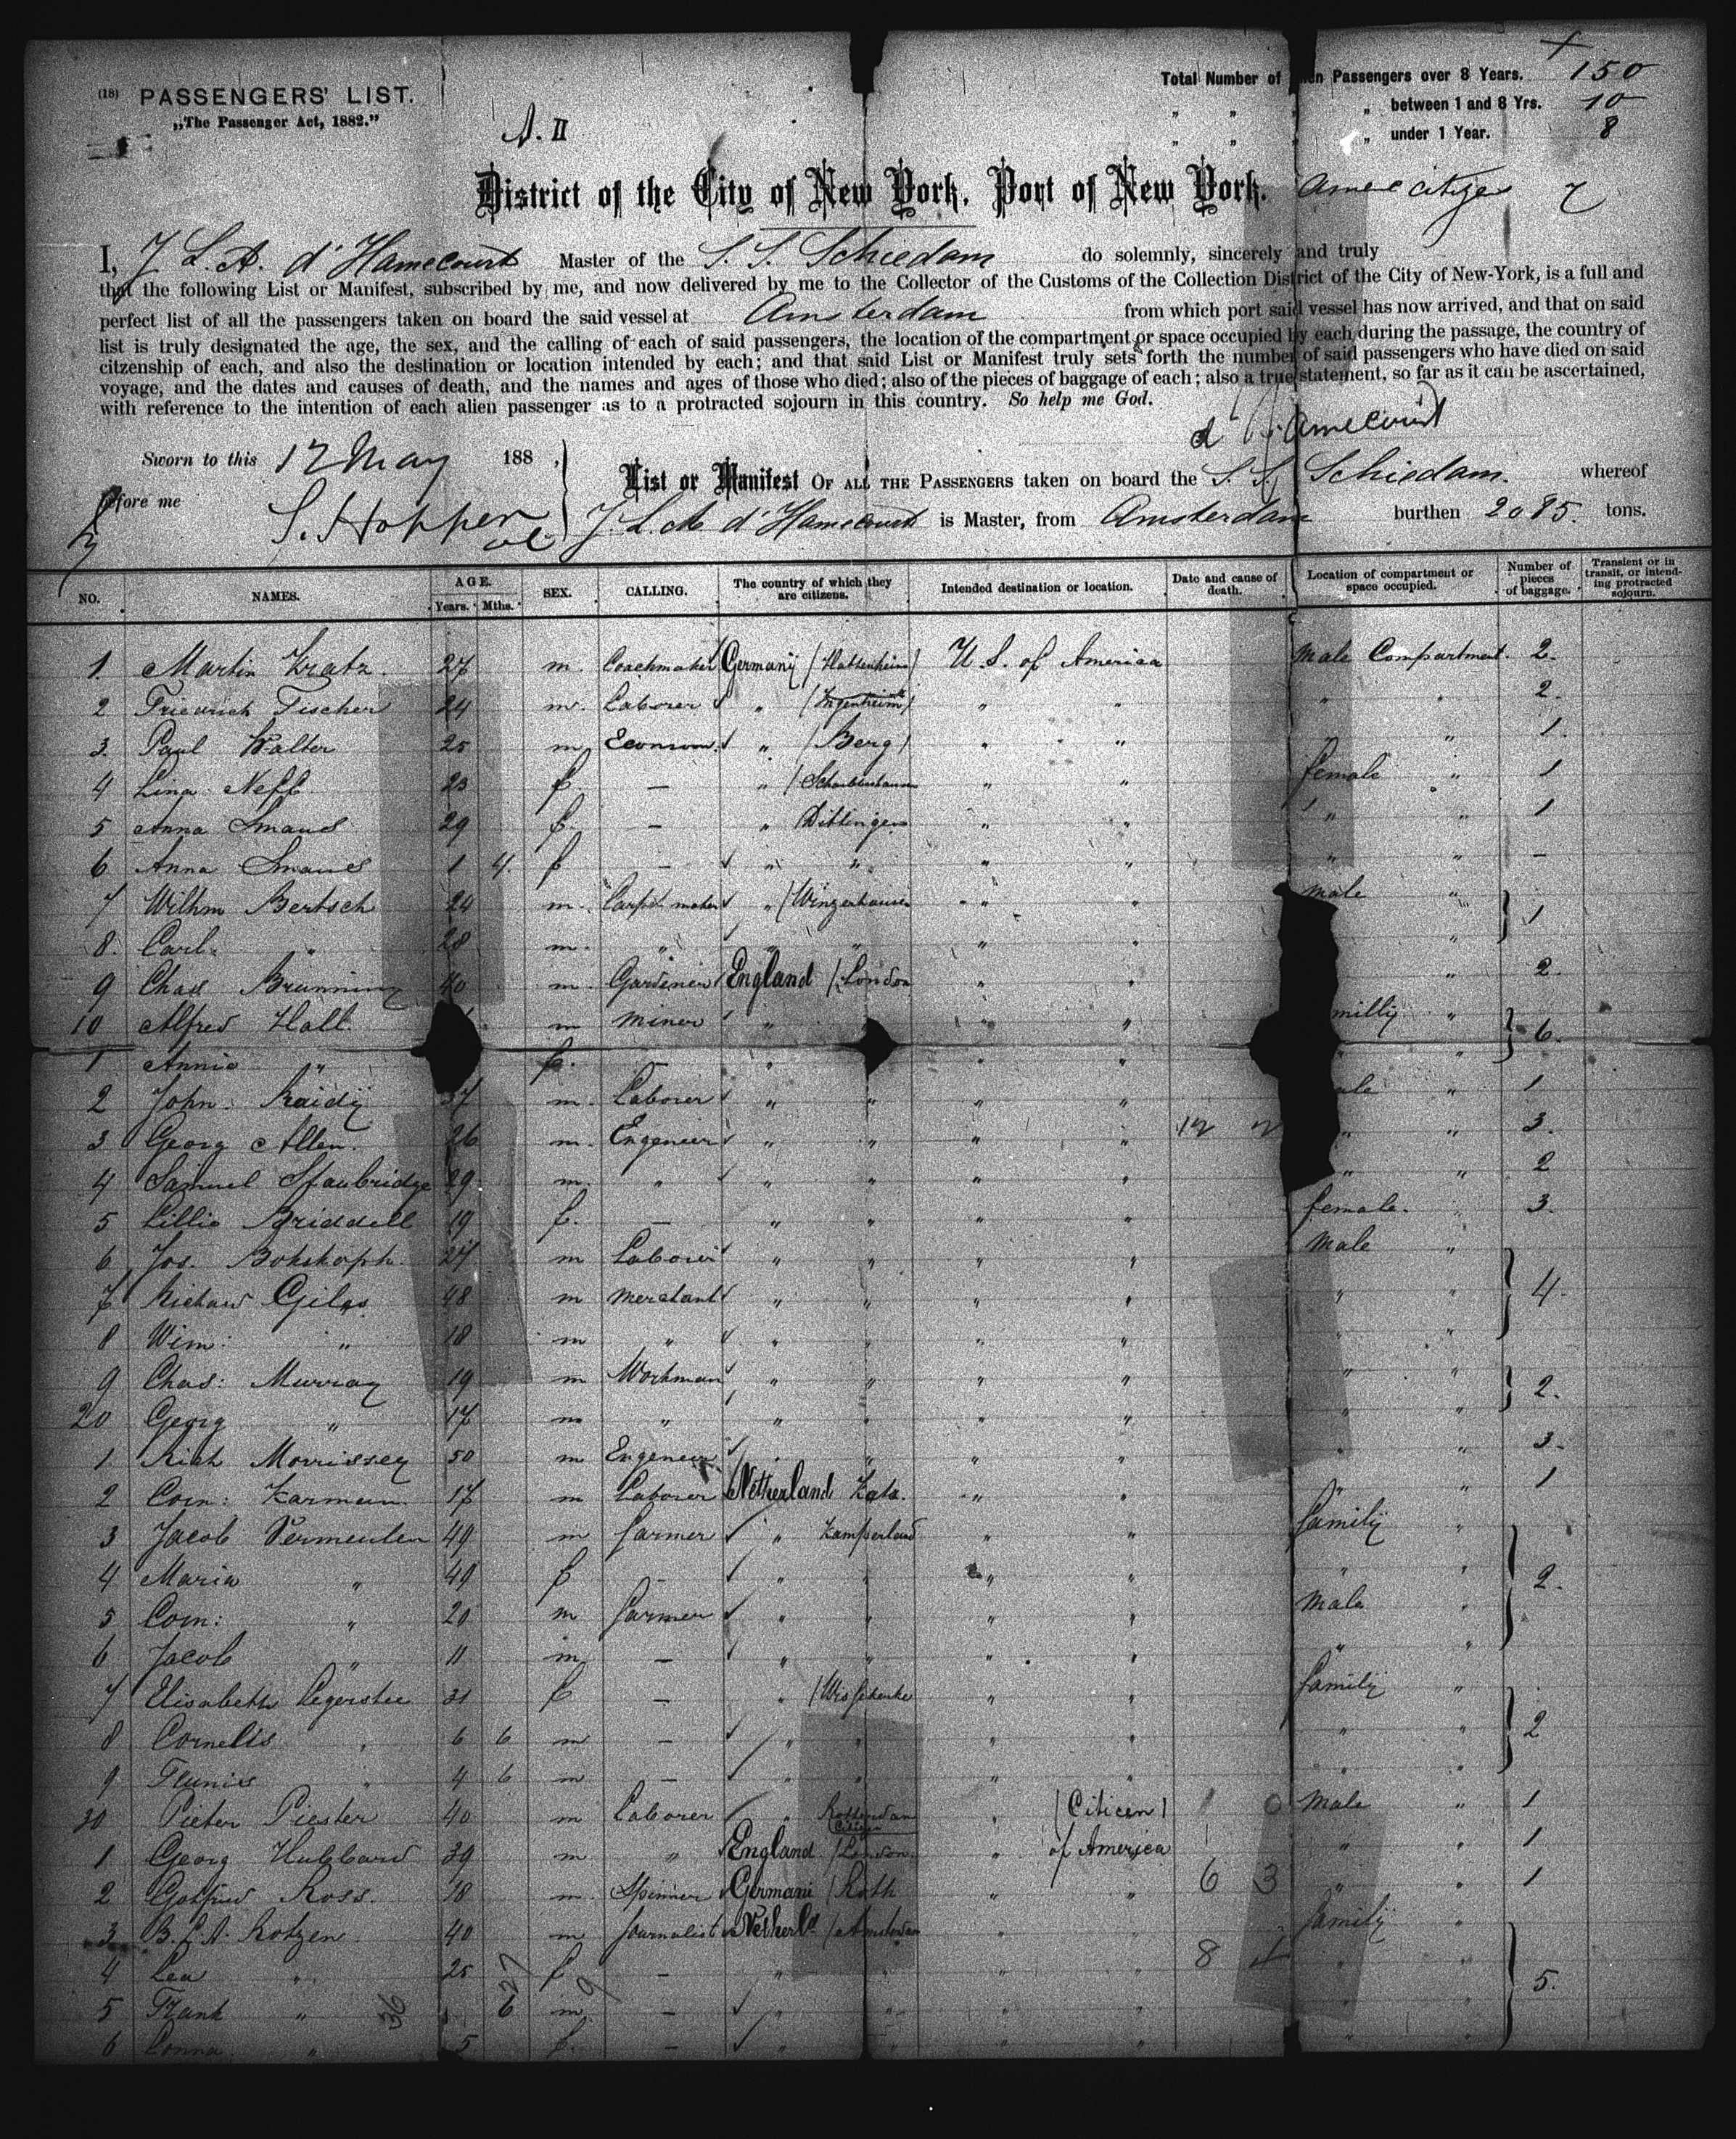 (18) PASSENGERS' LIST.
„The Passenger Act, 1882."
A. II
Total Number of Passengers over 8 Years. 150
„ „ „ between 1 and 8 Yrs. 10
„ „ „ under 1 Year. 8
District of the City of New York, Port of New York.
7
I, J. L. A. d'Hamecourt Master of the S. S. Schiedam do solemnly, sincerely and truly
that the following List or Manifest, subscribed by me, and now delivered by me to the Collector of the Customs of the Collection District of the City of New-York, is a full and
perfect list of all the passengers taken on board the said vessel at Amsterdam from which port said vessel has now arrived, and that on said
list is truly designated the age, the sex, and the calling of each of said passengers, the location of the compartment or space occupied by each during the passage, the country of
citzenship of each, and also the destination or location intended by each; and that said List or Manifest truly sets forth the number of said passengers who have died on said
voyage, and the dates and causes of death, and the names and ages of those who died; also of the pieces of baggage of each; also a true statement, so far as it can be ascertained,
with reference to the intention of each alien passenger as to a protracted sojourn in this country. So help me God.
d'Hamecourt
Sworn to this 12 May 188 ,
before me S. Hopper
List or Manifest OF ALL THE PASSENGERS taken on board the S. S. Schiedam. whereof
J. L. A. d'Hamecourt is Master, from Amsterdam burthen 2085. tons.
NO. NAMES. AGE. Years. Mths. SEX. CALLING. The country of which they are citizens. Intended destination or location. Date and cause of death. Location of compartment or space occupied. Number of pieces of baggage. Transient or in transit, or intending protracted sojourn.
1. Martin Kratz. 27 m. Coachmaker Germany (Hattenheim) U. S. of America Male Compartment. 2.
2 Friedrich Fischer 24 m. Laborer „ (Ingenheim) „ „ „ „ 2.
3. Paul Walter 25 m Econom. „ (Berg) „ „ „ „ 1.
4 Lina Neff 23 f. — „ „ „ female „ 1
5 Anna Smaus 29 f. — „ Dittingen „ „ „ „ 1
6 Anna Smaus 1 4. f — „ „ „ „ „ „ —
7 Wilhm Bertsch 24 m. Carpet maker „ (Winzerhausen „ „ male „ 1
8. Carl „ 28 m. „ „ „ „ „ „
9 Chas Brunning 40 m. Gardener England (London „ „ „ 2.
10 Alfred Hall. m miner „ „ „ „ „ 6.
1 Annie „ f. — „ „ „ „ „
2 John Raidy 37 m. Laborer „ „ „ „ „ 1
3 Georg Allen. 26 m. Engeneer „ „ „ „ „ „ 3.
4 Samuel Staubridge 29 m. „ „ „ „ „ „ „ 2
5 Lillie Briddell 19 f. — „ „ „ „ female. „ 3.
6 Jos. Bokskoph. 27 m Laborer „ „ „ „ Male „ 4.
7 Richard Giles 48 m merchant „ „ „ „ „ „
8 Wim: „ 18 m „ „ „ „ „ „ „
9 Chas: Murray 19 m Workman „ „ „ „ „ „ 2.
20 Georg „ 17 m „ „ „ „ „ „ „
1 Rich Morrissey 50 m Engeneer „ „ „ „ „ „ 3.
2 Corn: Karman. 17 m Laborer Netherland Kats. „ „ „ „ 1
3 Jacob Vermeulen 49 m farmer „ Kamperland „ „ family „ 2.
4 Maria „ 49 f — „ „ „ „ „ „
5 Corn: „ 20 m farmer „ „ „ „ Male „
6 Jacob „ 11 m — „ „ „ „ „ „
7 Elisabeth Legerstee 31 f — „ (Wissekerke „ „ family „ 2
8 Cornelis „ 6 6 m — „ „ „ „ „ „
9 Teunis „ 4 6 m — „ „ „ „ „ „
30 Pieter Piester 40 m Laborer „ Rotterdam „ (Citicen) Male „ 1
1 Georg Hubbard 39 m „ England (London. „ of America „ „ 1
2 Gotfried Ross. 18 m. Spinner Germani (Roth „ „ 6 3 „ „ 1
3 B. L. A. Rotzen. 40 m journalist Netherld (Amsterdam „ „ family „ 5.
4 Lea „ 25 f — „ „ „ „ 8 1 „ „
5 Frank „ 6 m — „ „ „ „ „ „
6 „ 5 f. — „ „ „ „ „
36 27 9